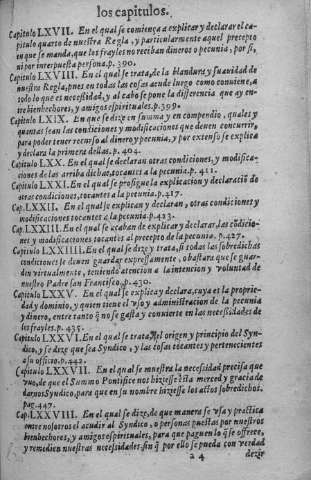 los capitulos.
Capitulo LXVII. En el qual se comiença a explicar y declarar el ca-
pitulo quarto de nuestra Regla, y particularmente aquel precepto
en que se manda, que los frayles no reciban dineros o pecunia, por si,
ni por interpuesta persona. p. 390.
Capitulo LXVIII. En el qual se trata, de la blandura y suauidad de
nuestra Regla, pues en todas las cosas acude luego como conuiene, a
todo lo que es necessidad, y al cabo se pone la differencia que ay en-
tre bienhechores, y amigos espirituales. p. 399.
Capitulo LXIX. En que se dize en summa y en compendio, quales y
quantas sean las condiciones y modificaciones que deuen concurrir,
para poder tener recurso al dinero y pecunia, y por extenso se explica
y declara la primera dellas. p. 404.
Capitulo LXX. En el qual se declaran otras condiciones, y modifica-
ciones de las arriba dichas, tocantes a la pecunia. p. 411.
Capitulo LXXI. En el qual se prosigue la explicacion y declaraciō de
otras condiciones, tocantes a la pecunia. p. 417.
Cap. LXXII. En el qual se explican y declaran, otras condiciones y
modificaciones tocantes a la pecunia. p. 423.
Cap. LXXIII. En el qual se acaban de explicar y declarar, las cōdicio-
nes y modificaciones tocantes al precepto de la pecunia. p. 427.
Capitulo LXXIIII. En el qual se dize y trata, si todas las sobredichas
condiciones se deuen guardar expressamente, o basta ra que se guar-
den virtualmente, teniendo atencion a la intencion y voluntad de
nuestro Padre san Francisco. p. 430.
Capitulo LXXV. En el qual se explica y declara, cuya es la proprie-
dad y dominio, y quien tiene el vso y administracion de la pecunia
y dinero, entre tanto q̄ no se gasta y conuierte en las necessidades de
los frayles. p. 435.
Capitulo LXXVI. En el qual se trata, del origen y principio del Syn-
dico, y se dize que sea Syndico, y las cosas tocantes y pertenecientes
a su officio. p. 442.
Capitulo LXXVII. En el qual se muestra la necessidad precisa que
vuo, de que el Summo Pontifice nos hiziesse esta merced y gracia de
darnos Syndico, para que en su nombre hiziesse los actos sobredichos.
pag. 447.
Cap. LXXVIII. En el qual se dize, de que manera se vsa y practica
entre nosotros el acudir al Syndico, o personas puestas por nuestros
bienhechores, y amigos espirituales, para que paguen lo q̄ se offrece,
y remedien nuestras necessidades. sin q̄ por ello se pueda con verdad
2 4 dezir